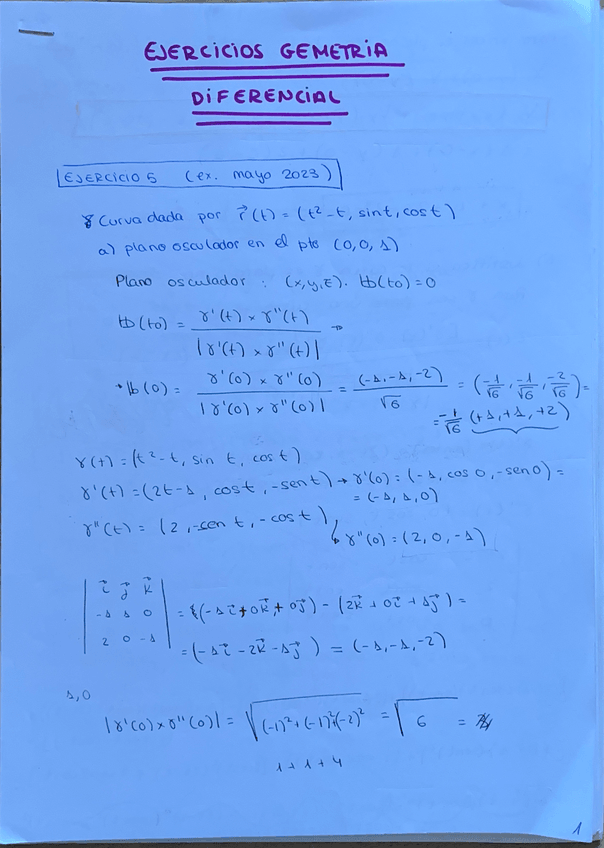 EJERCICIOS GEMETRIA
DIFERENCIAL
EJERCICIO 5 (ex. mayo 2023)
γ Curva dada por r⃗(t) = (t²-t, sint, cost)
a) plano osculador en el pto (0,0,1)
Plano osculador : (x,y,z). lb(to)=0
lb(to) = γ'(t) x γ''(t) / |γ'(t) x γ''(t)| →
lb(0) = γ'(0) x γ''(0) / |γ'(0) x γ''(0)| = (-1,-1,-2) / √6 = (-1/√6, -1/√6, -2/√6) =
= -1/√6 (+1,+1,+2)
γ(t) = (t²-t, sin t, cost)
γ'(t) = (2t-1, cost, -sent) → γ'(0) = (-1, cos 0, -sen0) =
= (-1,1,0)
γ''(t) = (2, -sen t, -cost)
↳ γ''(0) = (2,0,-1)
i⃗ j⃗ k⃗
-1 1 0 = (-1i⃗+0k⃗+0j⃗) - (2k⃗+0i⃗+1j⃗) =
2 0 -1 = (-1i⃗-2k⃗-1j⃗) = (-1,-1,-2)
1,0
|γ'(0) x γ''(0)| = √(-1)²+(-1)²+(-2)² = √6 =
1+1+4
1